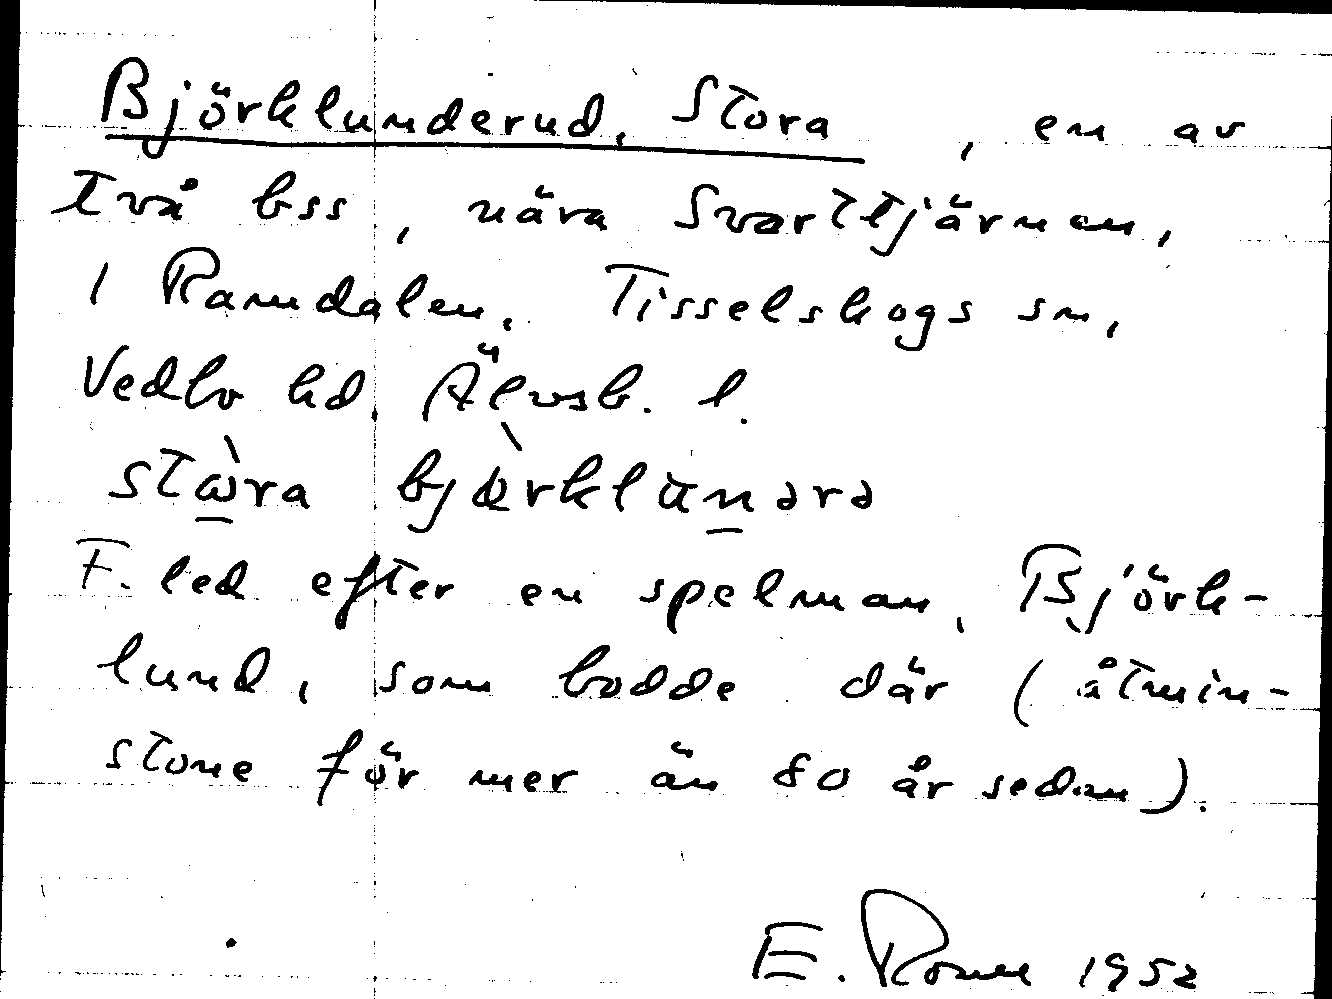 Björklunderud, Stora, en av
två bss, nära Svarttjärnen,
i Ramdalen, Tisselskogs sn,
Vedbo hd. Älvsb. l.
F. led efter en spelman, Björk-
lund, som bodde där (åtmin-
stone för mer än 80 år sedan).
E. 1952